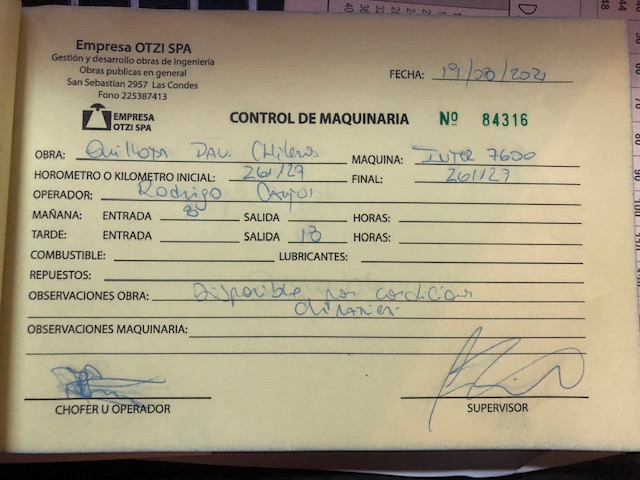 Empresa OTZI SPA
Gestión y desarrollo obras de Ingeniería
Obras publicas en general
San Sebastian 2957 Las Condes
Fono 225387413
FECHA: 19/08/2021
EMPRESA
OTZI SPA
CONTROL DE MAQUINARIA Nº 84316
OBRA: Quillota MAQUINA: 7600
HOROMETRO O KILOMETRO INICIAL: FINAL: 26127
OPERADOR: Rodrigo
MAÑANA: ENTRADA 8 SALIDA HORAS:
TARDE: ENTRADA SALIDA 18 HORAS:
COMBUSTIBLE: LUBRICANTES:
REPUESTOS:
OBSERVACIONES OBRA: Disponible por condición
OBSERVACIONES MAQUINARIA:
CHOFER U OPERADOR SUPERVISOR